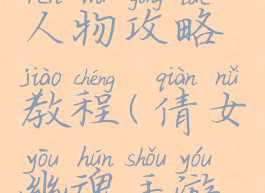 rén wù gōng lüè
人物攻略
jiào chéng qiàn nǚ
教程(倩女
yōu hún shǒu yóu
幽魂手游